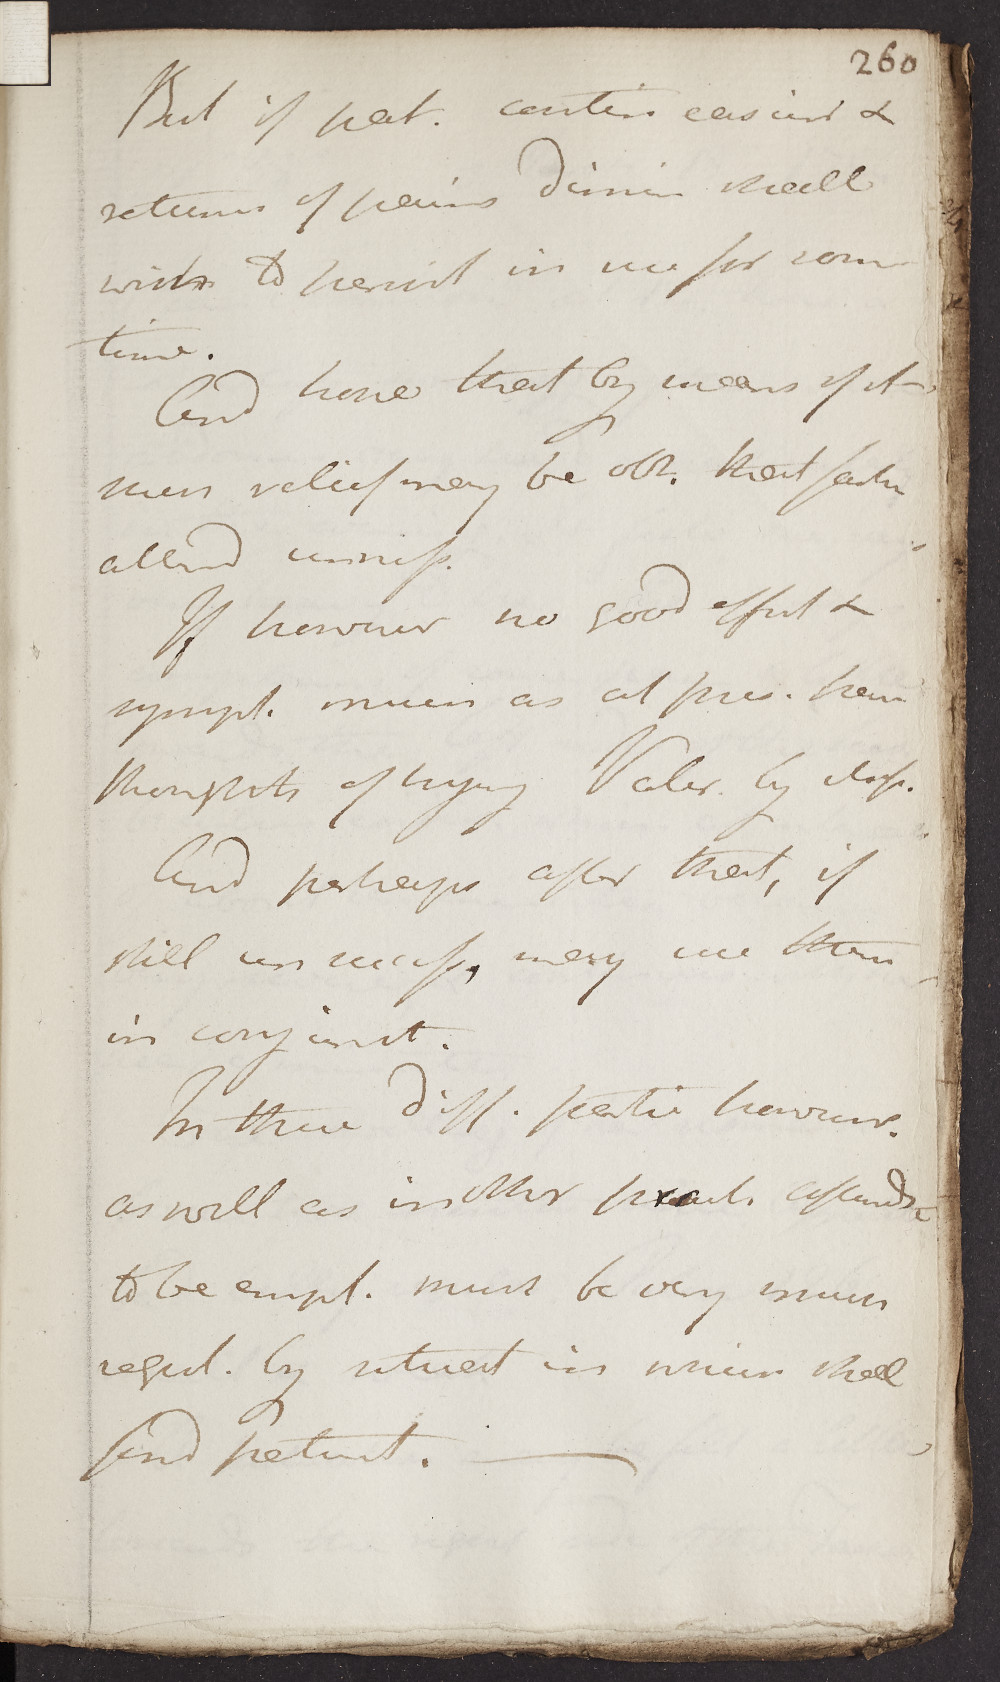 260
But if pat. contin easier &
returns of pains Dimin shall
wish to persist in use for som
time.
And hope that by means of it
such relief may be obt. that farther
attend unness.
If however no good effect &
sympt. much as at pres. have
thoughts of trying Valer. by itself.
And perhaps after that, if
still unsuccessf, may use them
in conjunct.
In these Diff. partic however.
as well as in other pract afterwds
to be empl. must be very much
regul. by situat in which shall
find patient.